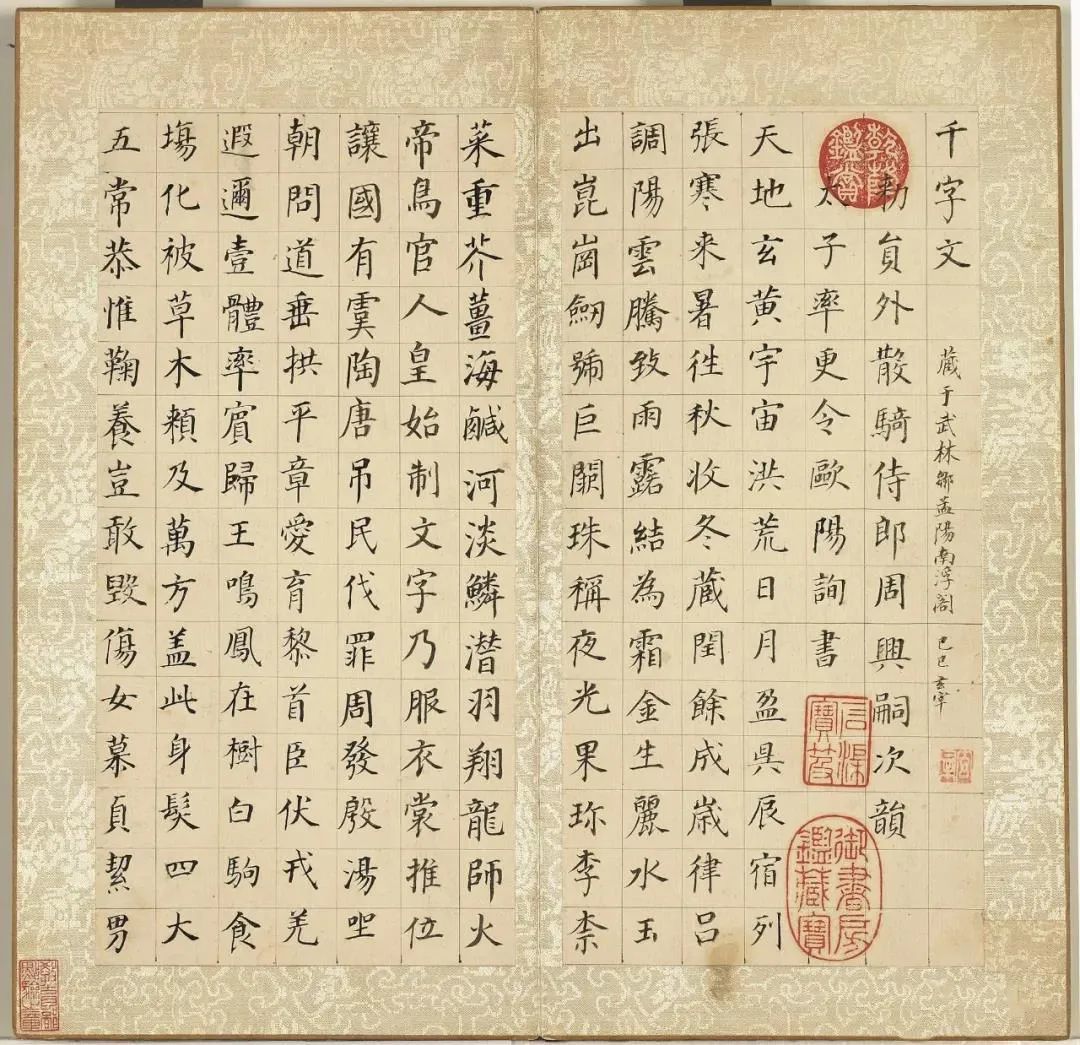 千字文
藏于武林鄒孟陽南浮閣 己巳玄宰
勅員外散騎侍郎周興嗣次韻
乾隆鑑賞
太子率更令歐陽詢書
石渠寶笈
御書房鑑藏寶
天地玄黃宇宙洪荒日月盈昃辰宿列
張寒来暑往秋收冬藏閏餘成歲律呂
調陽雲騰致雨露結為霜金生麗水玉
出崑崗劒號巨闕珠稱夜光果珎李柰
菜重芥薑海鹹河淡鱗潛羽翔龍師火
帝鳥官人皇始制文字乃服衣裳推位
讓國有虞陶唐吊民伐罪周發殷湯坐
朝問道垂拱平章愛育黎首臣伏戎羌
遐邇壹體率賓歸王鳴鳳在樹白駒食
場化被草木賴及萬方盖此身髮四大
五常恭惟鞠養豈敢毀傷女慕貞絜男